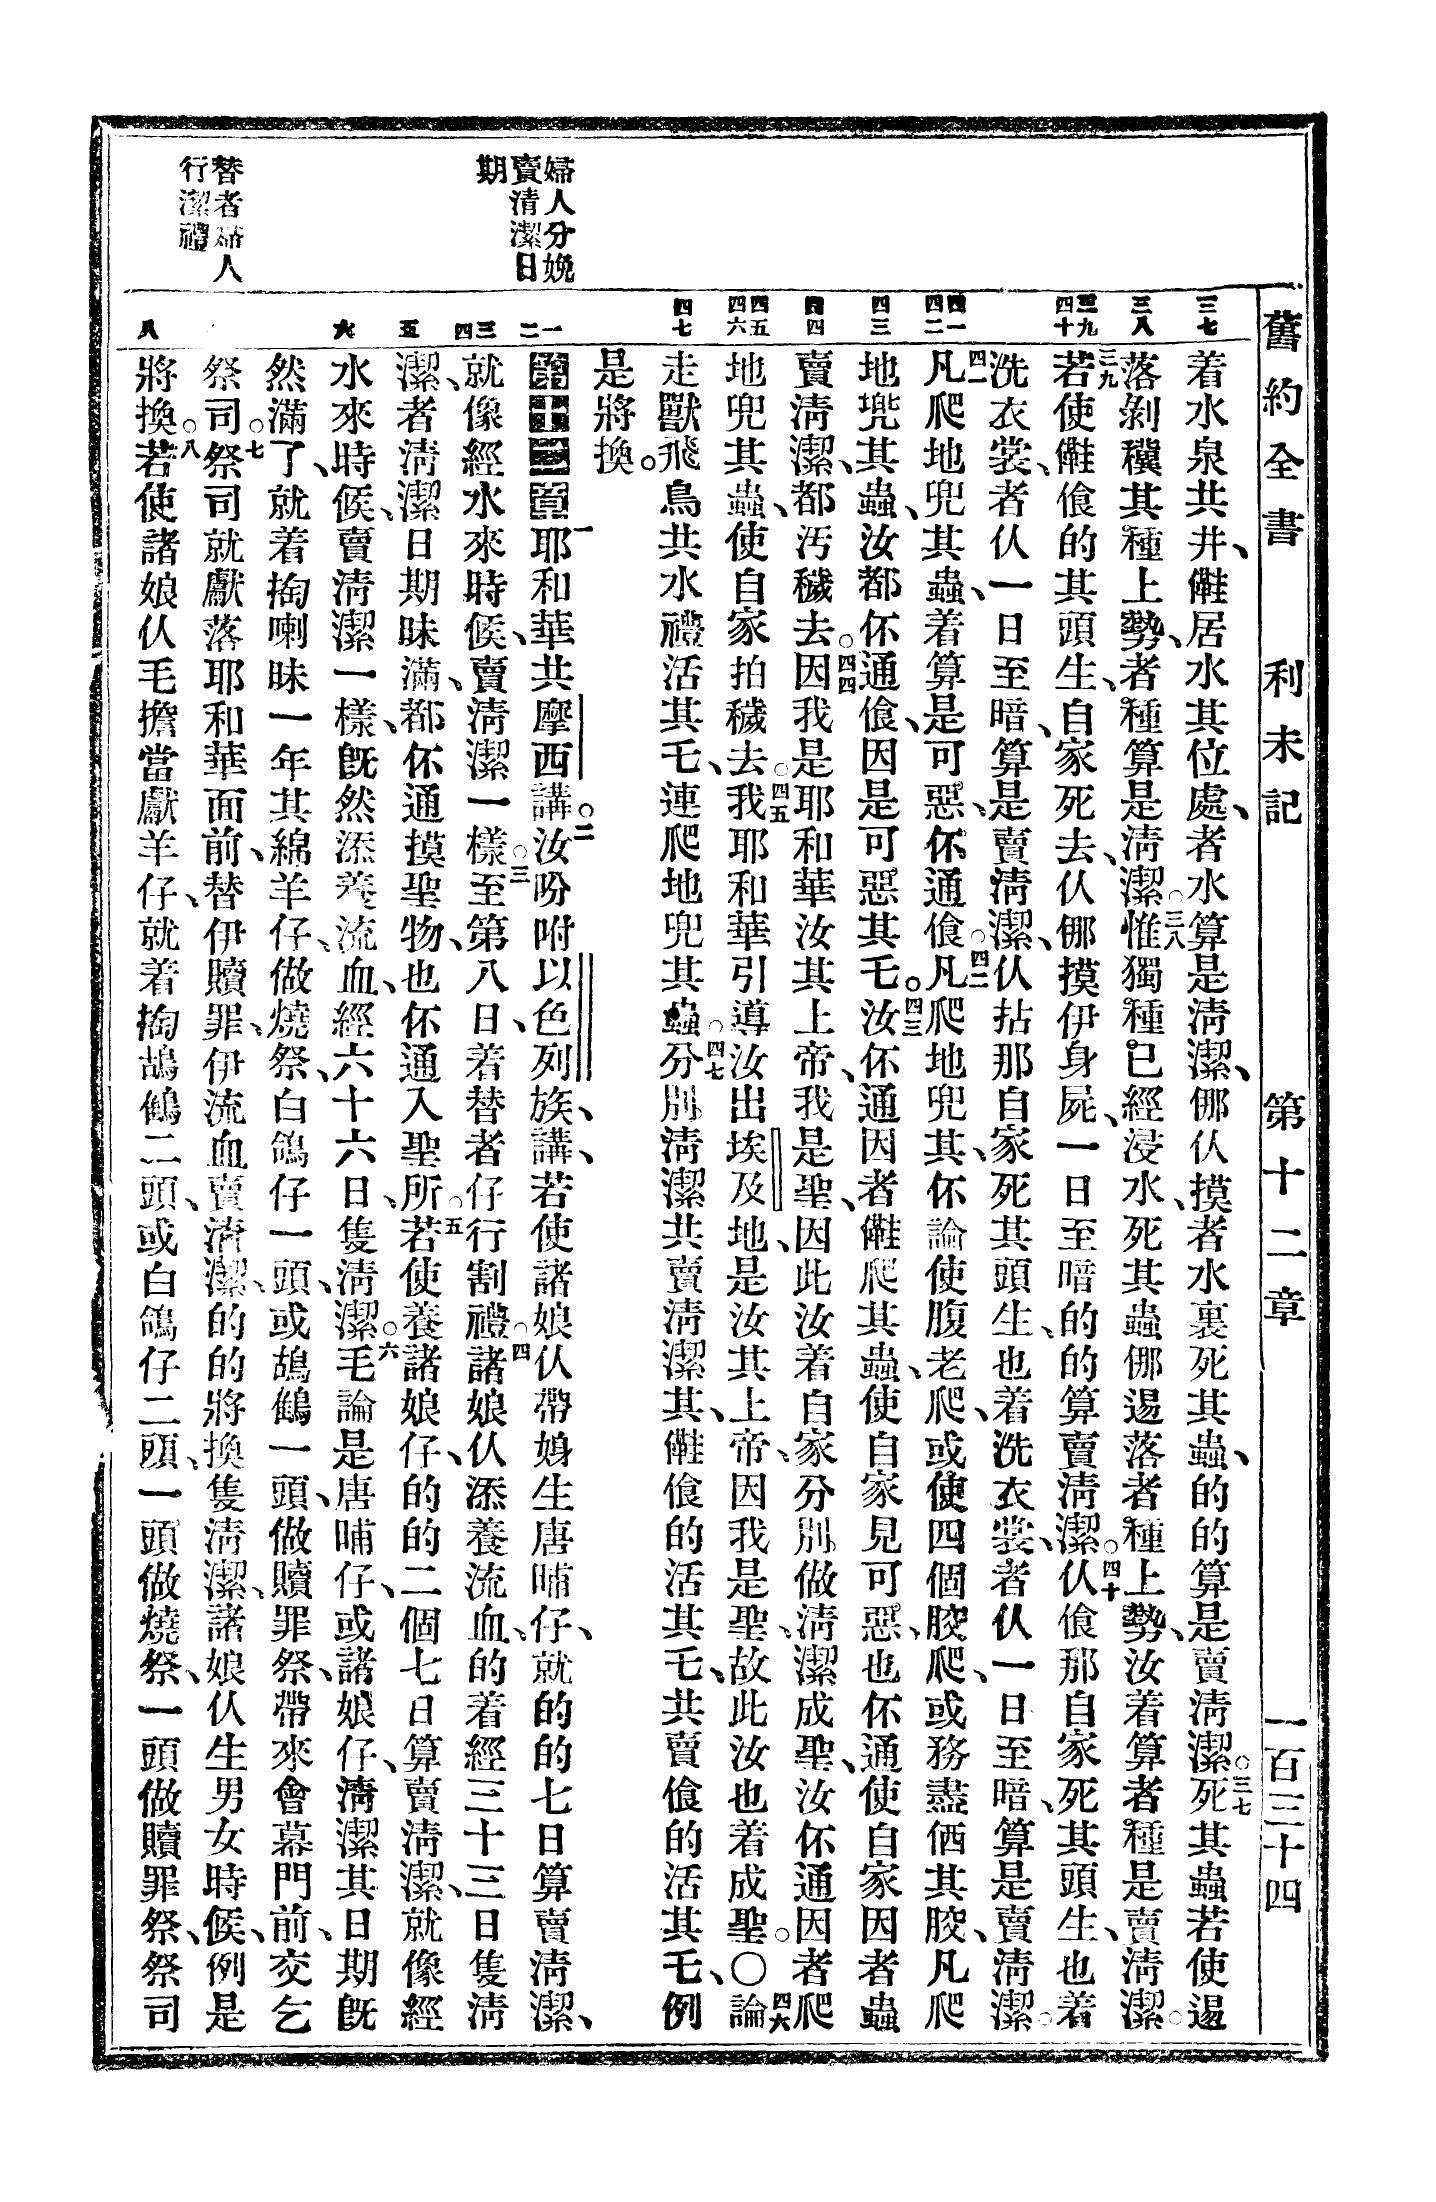 舊約全書 利未記 第十二章 一百三十四
三七
三八
三九 四十
四一 四二
四三
四四
四五 四六
四七
一 二
三 四
五
六
八
婦人分娩
賣清潔日
期
替者婦人
行潔禮
着水泉共井、㒕居水其位處、者水算是清潔、𠆧仈摸者水裏死其蟲、的的算是賣清潔。三七死其蟲若使逿
落剝䆅其種上勢、者種算是清潔。三八惟獨種已經浸水、死其蟲𠆧逿落者種上勢、汝着算者種是賣清潔。
三九若使㒕飡的其頭生、自家死去、仈𠆧摸伊身屍、一日至暗的的算賣清潔。四十仈飡那自家死其頭生、也着
洗衣裳、者仈一日至暗、算是賣清潔、仈拈那自家死其頭生、也着洗衣裳、者仈一日至暗、算是賣清潔。
四一凡爬地兜其蟲、着算是可惡、伓通飡。四二凡爬地兜其、伓論使腹老爬、或使四個骹爬、或務盡價其骹、凡爬
地兜其蟲、汝都伓通飡、因是可惡其乇。四三汝伓通因者㒕爬其蟲、使自家見可惡、也伓通使自家因者蟲
賣清潔、都汚穢去。四四因我是耶和華汝其上帝、我是聖、因此汝着自家分別、做清潔成聖、汝伓通因者爬
地兜其蟲、使自家拍穢去。四五我耶和華引導汝出埃及地、是汝其上帝、因我是聖、故此汝也着成聖。〇四六論
走獸飛鳥共水𥚃活其乇、連爬地兜其蟲。四七分別清潔共賣清潔其、㒕飡的活其乇、共賣飡的活其乇、例
是將換。
第十二章 一耶和華共摩西講。二汝吩咐以色列族、講、若使諸娘仈帶娠生唐晡仔、就的的七日算賣清潔、
就像經水來時候、賣清潔一樣。三至第八日、着替者仔行割禮。四諸娘仈添養流血、的着經三十三日隻清
潔、者清潔日期昧滿、都伓通摸聖物、也伓通入聖所。五若使養諸娘仔、的的二個七日算賣清潔、就像經
水來時候、賣清潔一樣、旣然添養流血、經六十六日隻清潔。六毛論是唐晡仔、或諸娘仔、清潔其日期旣
然滿了、就着掏喇昧一年其綿羊仔、做燒祭、白鴿仔一頭、或鴣鶬一頭、做贖罪祭、帶來會幕門前、交乞
祭司。七祭司就獻落耶和華面前、替伊贖罪、伊流血賣清潔、的的將換隻清潔、諸娘仈生男女時候、例是
將換。八若使諸娘仈毛擔當獻羊仔、就着掏鴣鶬二頭、或白鴿仔二頭、一頭做燒祭、一頭做贖罪祭、祭司